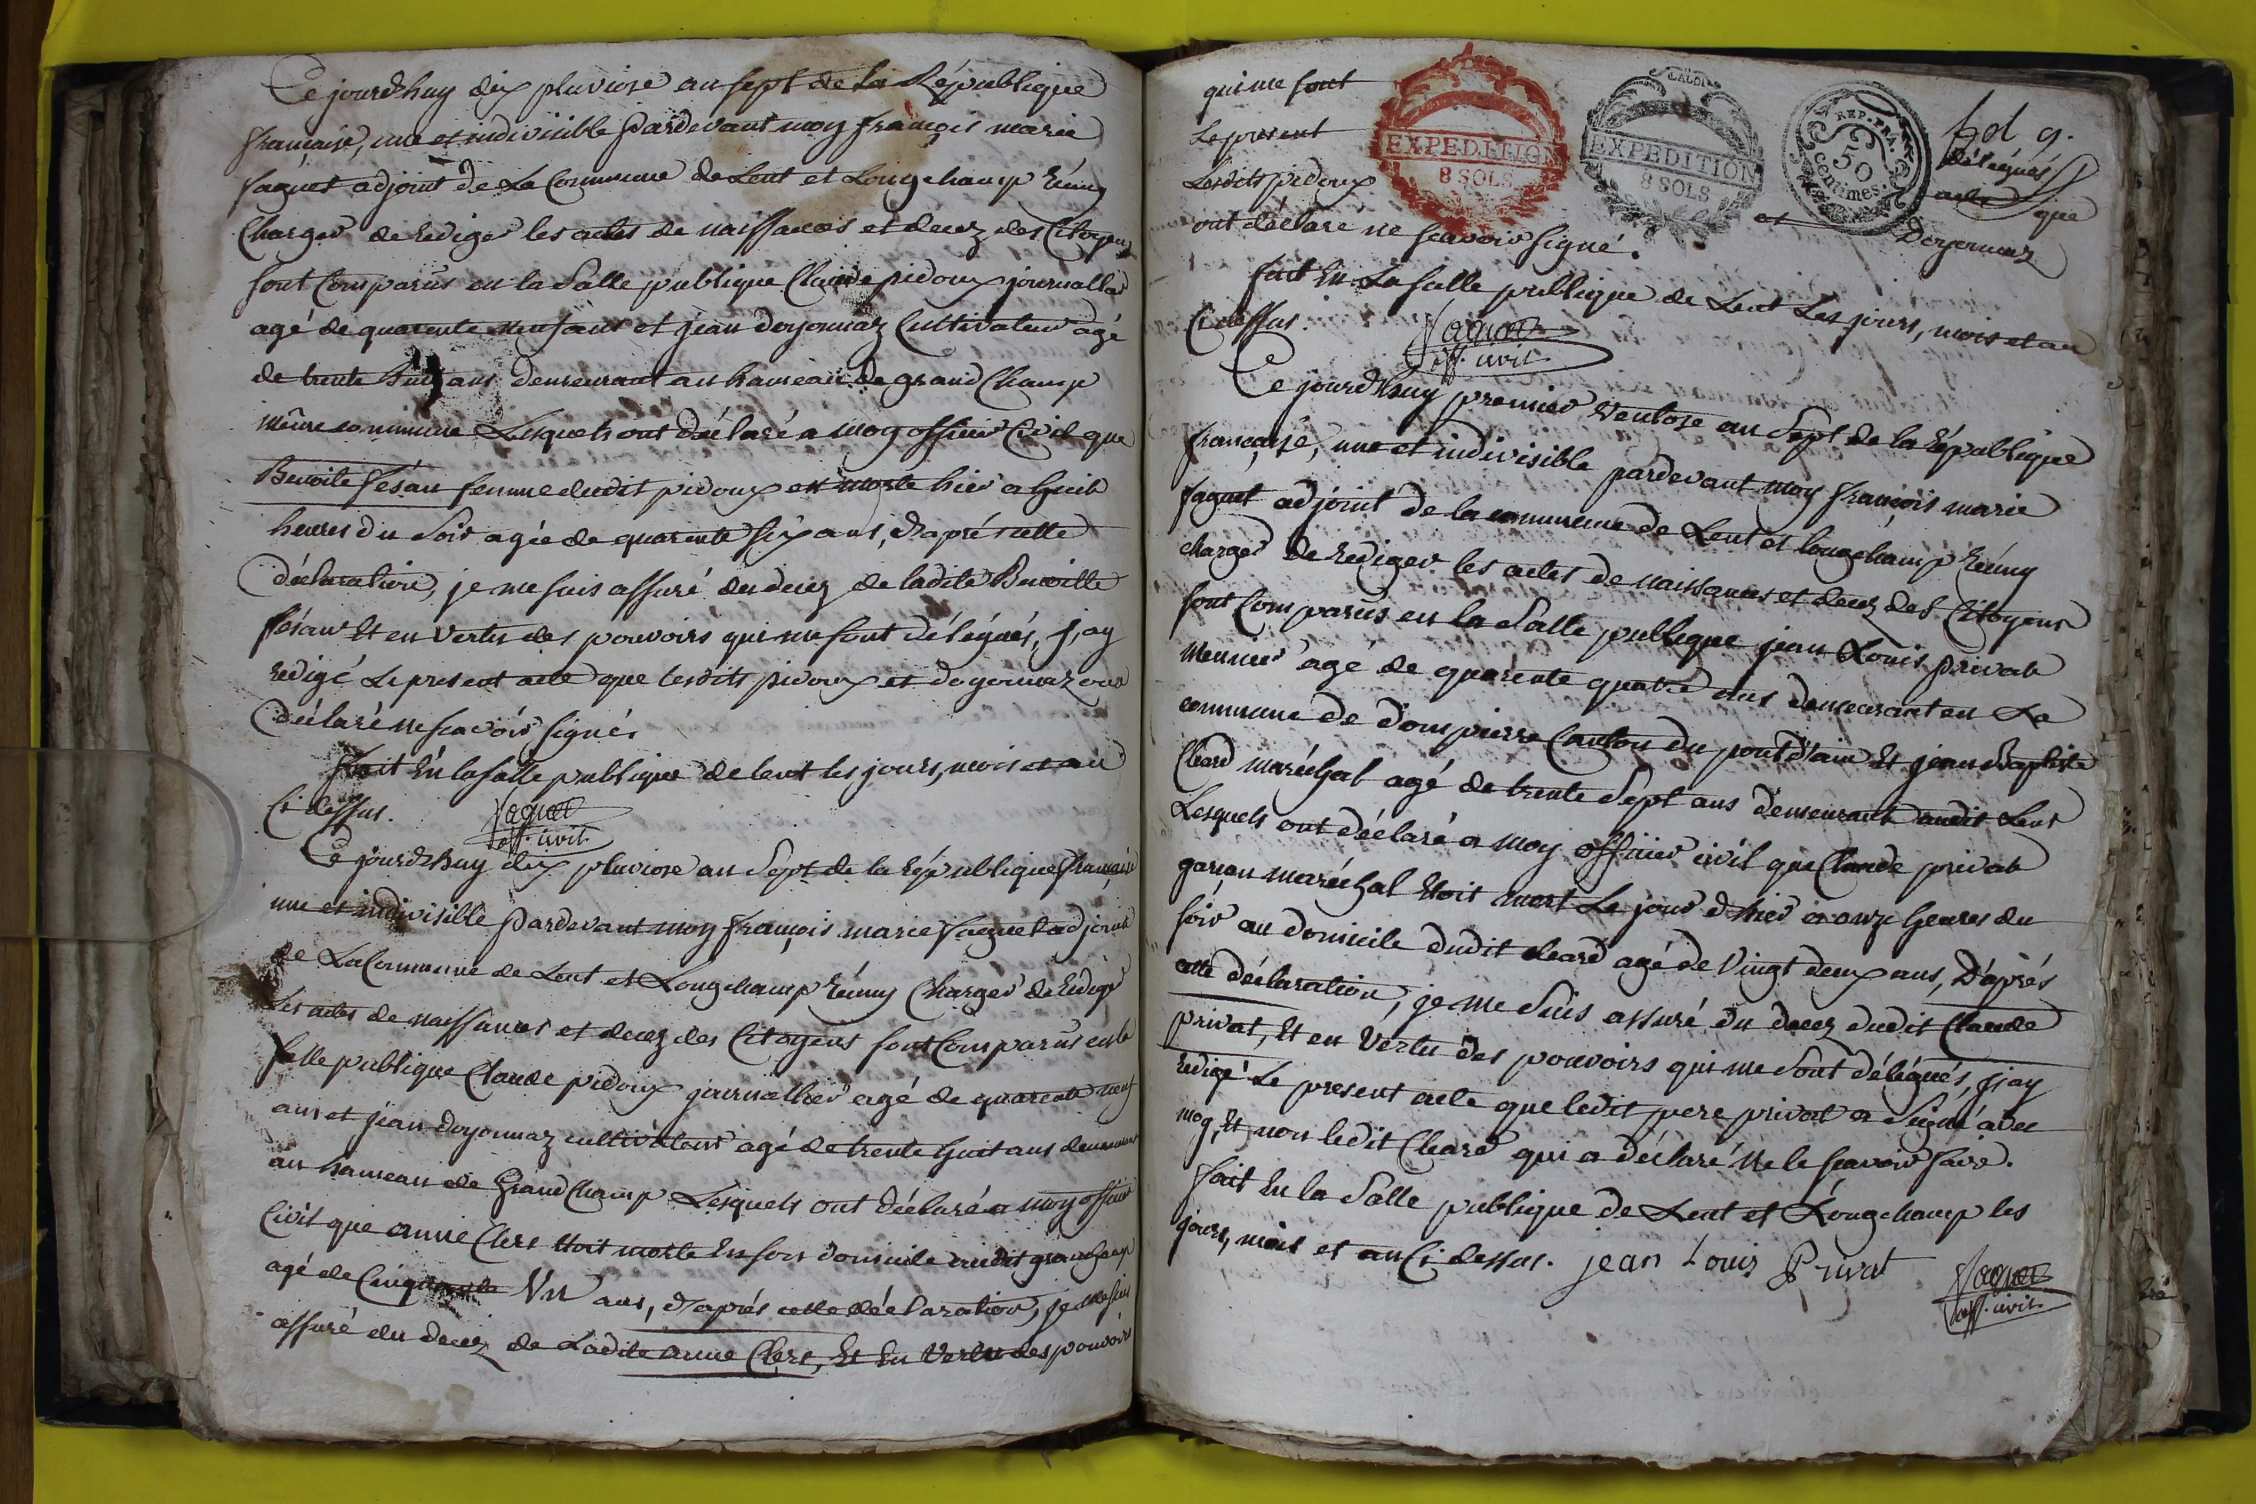 Ce jourdhuy dix pluviose an sept de la République
française, une et indivisible pardevant moy françois marie
faguet adjoint de La Commune de Lent et Longchamp réuny
Charger de rediger les actes de naissances et decez des Citoyens
sont Comparus en la Salle publique Claude pidoux journallier
agé de quarente neuf ans et jean doyonnaz Cultivateur agé
de trente huit ans demeurant au hameau de grand Champ
même commune Lesquels ont déclaré a moy officier Civil que
Benoite fésau femme dudit pidoux est morte hier a huit
heures du Soir agée de quarente six ans, d'aprés cette
déclaration, je me suis assuré du decez de ladite Benoitte
fésau Et en vertu des pouvoirs qui me sont délégués, j'ay
redigé Le present acte que lesdits pidoux et doyonnaz ont
déclaré ne scavoir signé.
fait En la salle publique de lent les jours, mois et an
Ci dessus. faguet
off. civil
Ce jourdhuy dix pluviose an Sept de la République française
une et indivisible pardevant moy françois marie faguet adjoint
de La Commune de Lent et Longchamp réuny Charger de rédiger
Les actes de naissances et decez des Citoyens sont Comparus en la
salle publique Claude pidoux journallier agé de quarente neuf
ans et jean doyonnaz cultivateur agé de trente huit ans demeurant
au hameau de Grand Champ Lesquels ont déclaré a moy officier
Civil que anne Clerc etoit morte En son domicile audit grandchamp
agé de Cinquante Un ans, d'aprés cette déclaration, je me suis
assuré du decez de Ladite anne Clerc, Et En Vertu des pouvoirs
qui me sont délégués
Le present acte que
Lesdits pidoux et Doyonnaz
ont déclaré ne scavoir signé.
EXPEDITION
8 SOLS
EXPEDITION
8 SOLS
REP. FRA.
50
centimes.
fait En La salle publique de Lent Les jours, mois et an
Ci dessus. faguet
off. civil
Ce jourdhuy premier Ventose an Sept de la République
française, une et indivisible pardevant moy françois marie
faguet adjoint de la commune de Lent et longchamp réuny
charger de rediger les actes de naissances et decez des Citoyens
sont Comparus en la Salle publique jean Louis privat
meunier agé de quarente quatre ans demeurant en La
commune de dompierre Canton du pont d'ain et jean Baptiste
Cleard maréchal agé de trente Sept ans demeurant audit Lent
Lesquels ont déclaré a moy officier civil que Claude privat
garçon maréchal Etoit mort Le jour d'hier a onze heures du
soir au domicile dudit cleard agé de Vingt deux ans, D'aprés
cette déclaration, je me Suis assuré du decez dudit Claude
privat, Et en Vertu des pouvoirs qui me Sont délégués, j'ay
redigé Le present acte que ledit pere privat a Signé avec
moy, Et non ledit Cleard qui a déclaré Ne le scavoir faire.
fait En la Salle publique de Lent et Longchamp les
jours, mois et an Ci dessus. jean Louis Privat faguet
off. civil